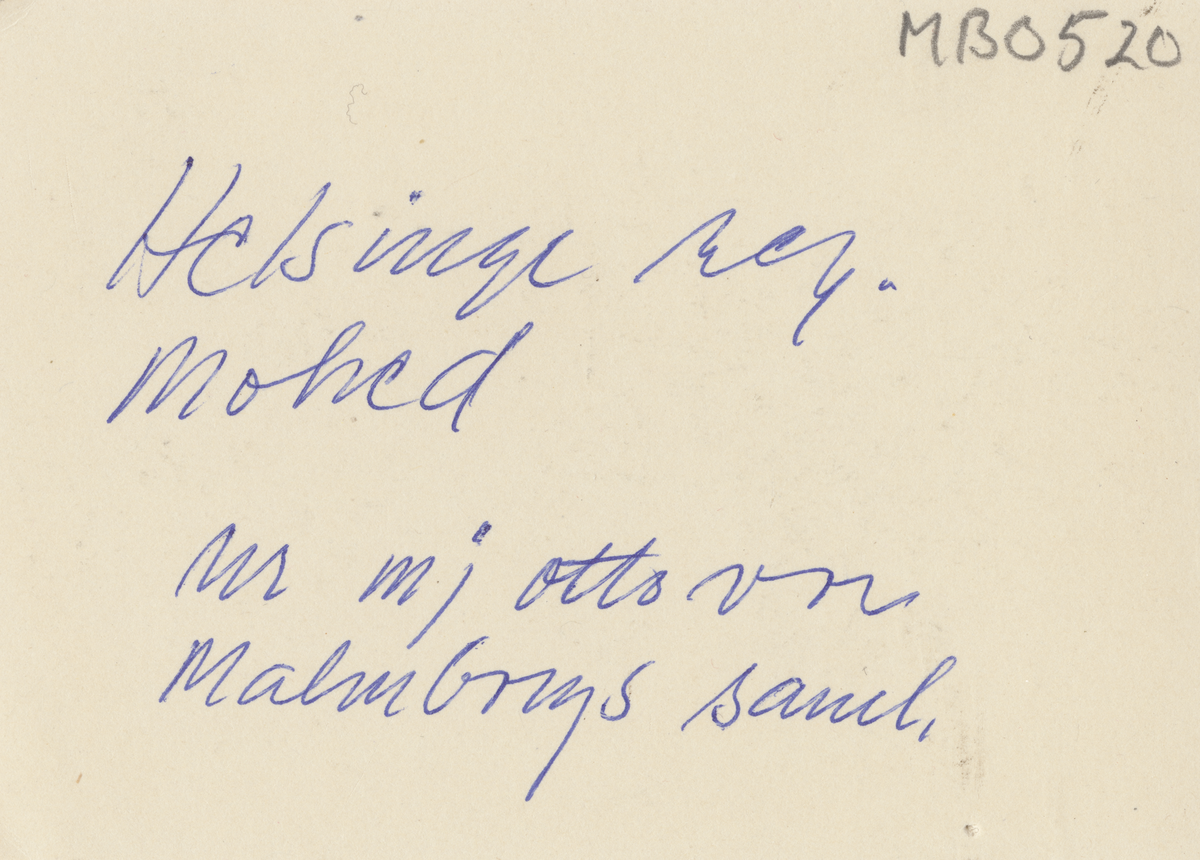 MB0520
Helsinge reg.
Mohed
ur mj Otto von
Malmborgs saml.